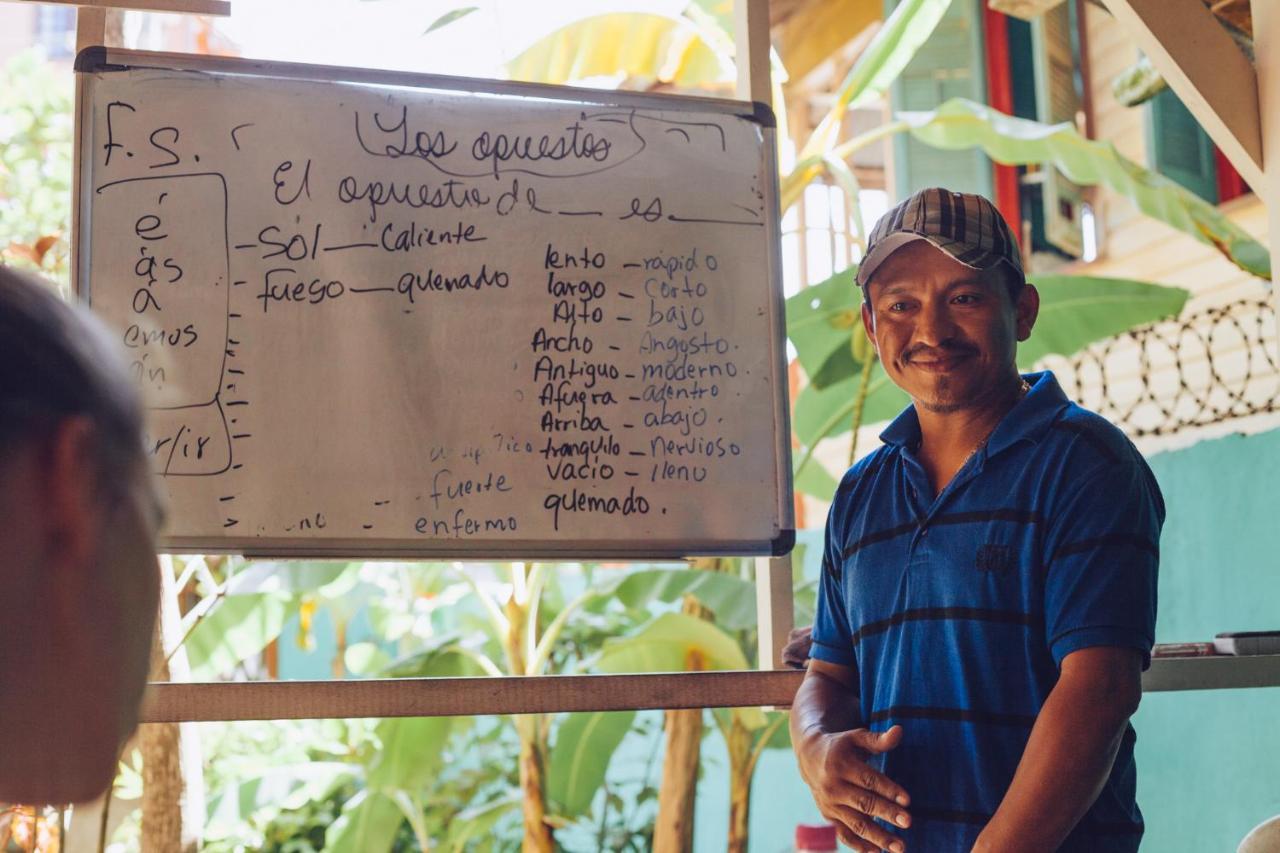 F.S.
Los opuestos
El opuesto de __ es.____
é
ás
á
emos
án
r/ir
- Sol — Caliente
- fuego — quemado
lento - rapido
largo - corto
Alto - bajo
Ancho - Angosto.
Antiguo - moderno.
Afuera - adentro.
Arriba - abajo.
tranquilo - nervioso
vacío - lleno
quemado.
fuerte
enfermo